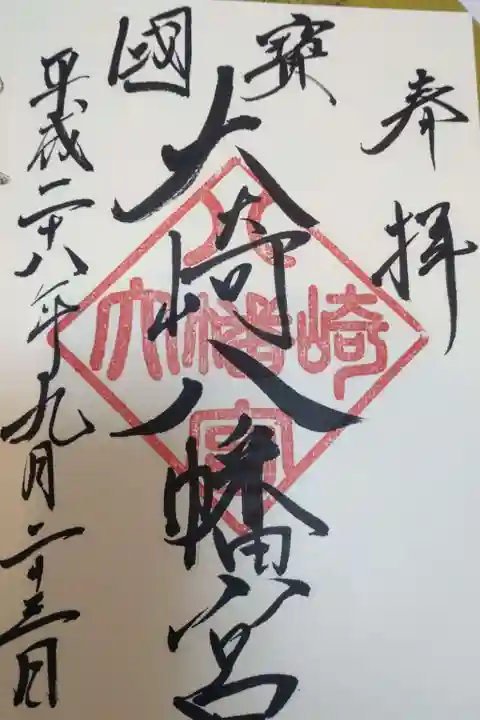 奉拝
國寳
大崎八幡宮
平成二十八年九月二十三日
八
大幡崎
宮